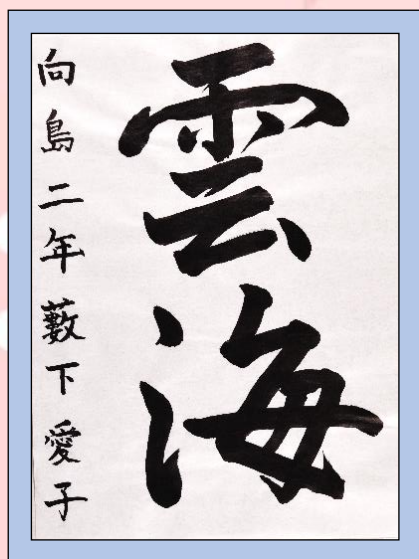 雲海
向島二年藪下愛子